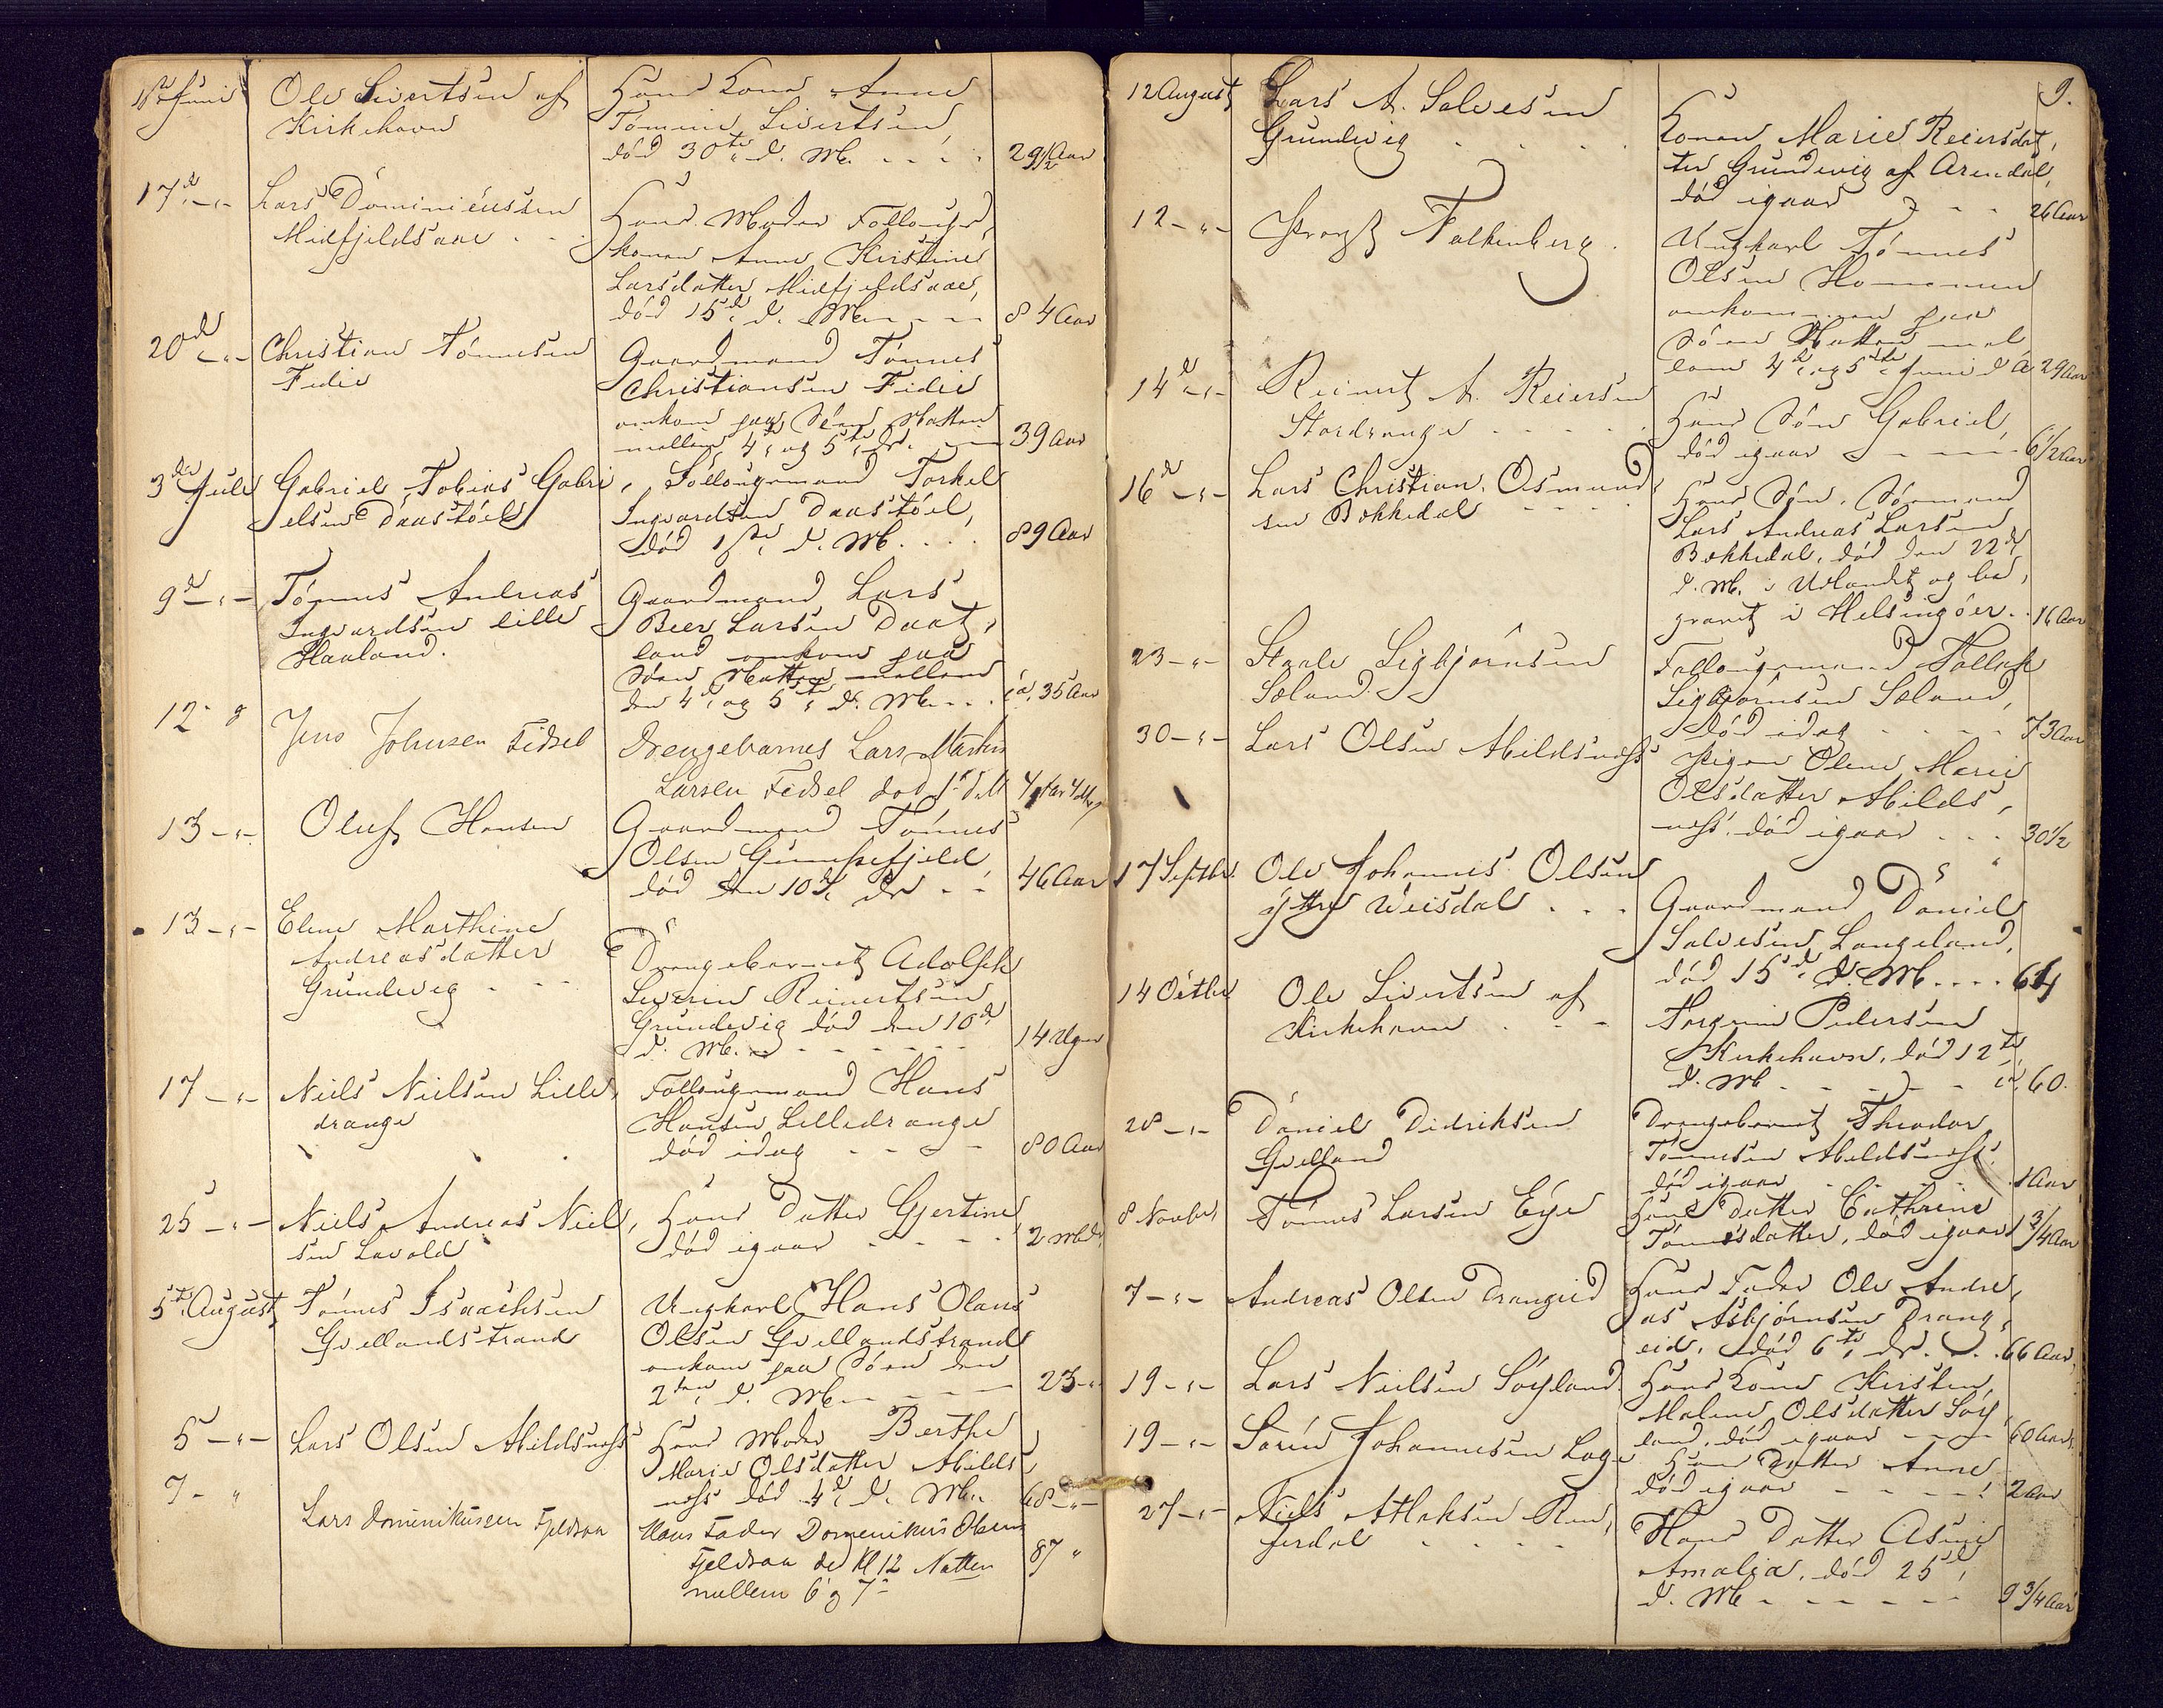 1ste Juni
Ole Sivertsen af
Kirkehavn
Hans Kone Anne
Tomine Sivertsen,
død 30te d. M.
29 1/2 Aar
17d -"-
Lars Dominicussen
Midfjeldsaae
Hans Moder Follougs,
konen Anne Kirstine
Larsdatter Midfjeldsaae,
død 15d d. M.
84 Aar
20d -"-
Christian Tønnesen
Fidie
Gaardmand Tønnes
Christiansen Fidie
omkom paa Søen Natten
mellem 4d og 5te ds.
39 Aar
3die Juli
Gabriel Tobias Gabri,
elsen Daastøel
Follougsmand Torkel
Ingvardsen Daastøel,
død 1ste d. M.
89 Aar
9d -"-
Tønnes Andreas
Ingvardsen lille
Haaland.
Gaardmand Lars
Beer Larsen Daat,
land omkom paa
Søen Natten mellem
den 4d og 5te d. M.
35 Aar
12-
Jens Johnsen Fidsel
Drengebarnet Lars
Larsen Fidsel død 1ste d M
4 Aar
13 -"-
Oluf Hansen
Gaardmand Tønnes
Olsen Gumpefjeld
død den 10d ds
46 Aar
13 -"-
Elene Marthine
Andreasdatter
Grundevig
Drengebarnet Adolph
Severin Reinertsen
Grundevig død den 10d
d. M.
14 Uger
17 -"-
Niels Nielsen Lille,
drange
Follougsmand Hans
Hansen Lilledrange
død idag
80 Aar
25 -"-
Niels Andreas Niel,
sen Lavold
Hans Datter Gjertine,
død igaar
2 Mdr
5te August
Tønnes Isachsen
Gvellandstrand
Ungkarl Hans Olaus
Olsen Gvellandstrand
omkom paa Søen den
2den d. M.
23 -"-
5 -"-
Lars Olsen Abildsnæss
Hans Moder Berthe
Marie Olsdatter Abilds,
næss død 4d d. M.
68 -"-
7 - "
Lars Dominikussen Fjeldsaa
Hans Fader Domenikus Olsen
Fjeldsaa de Kl 12 Natten
mellem 6 og 7-
87 "
9.
12 August
Lars A. Salvesen
Grundevig
Konen Marie Reiersdat,
ter Grundevig af Arendal,
død igaar
26 Aar
12 -"-
Provst Falkenberg
Ungkarl Tønnes
Olsen Homenen
omkommen paa
Søen Natten mel
lem 4d og 5te Juni d A
29 Aar
14d -"-
Reinert A. Reiersen
Stordrange
Hans Søn Gabriel,
død igaar
6 1/2 Aar
16d -"-
Lars Christian Osmund,
sen Bökkedal
Hans Søn, Sømand
Lars Andreas Larsen
Bökkedal, død den 22d
d. M. i Udlandet og be,
gravet i Helsingøer.
16 Aar
23 -"-
Staale Sigbjørnsen
Sæland
Follougsmand Tollak
Sigbjørnsen Sæland,
død idag
73 Aar
30 -"-
Lars Olsen Abildsnæss
Pigen Olene Marie
Olsdatter Abilds,
næss, død igaar
30 1/2
17 Septbr.
Ole Johannes Olsen
yttre Veisdal
Gaardmand Daniel
Salvesen Langeland,
død 15d d. M.
64
14 Octbr
Ole Sivertsen af
Kirkehavn
Torgrim Pedersen
Kirkehavn, død 12te
d. M
60.
28 -"-
Daniel Didriksen
Gvelland
Drengebarnet Theodor
Tønnesen Abeldsnæss.
død igaar
1 Aar
8 Novbr,
Tønnes Larsen Eye
Hans Datter Cathrine
Tønnesdatter, død igaar
1 3/4 Aar
7 -"-
Andreas Olsen Drangeid
Hans Fader Ole Andre,
as Asbjørnsen Drang,
eid, død 6te ds.
66 Aar,
19 -"-
Lars Nielsen Søyland
Hans Kone Kirsten
Malene Olsdatter Søy,
land, død igaar
60 Aar
19 -"-
Sørin Johannesen Loge
Hans Datter Anne
død igaar
2 Aar
27 -"-
Niels Atlaksen Ram,
ferdal
Hans Datter Asine
Amalia, død 25d
d. M
9 3/4 Aar